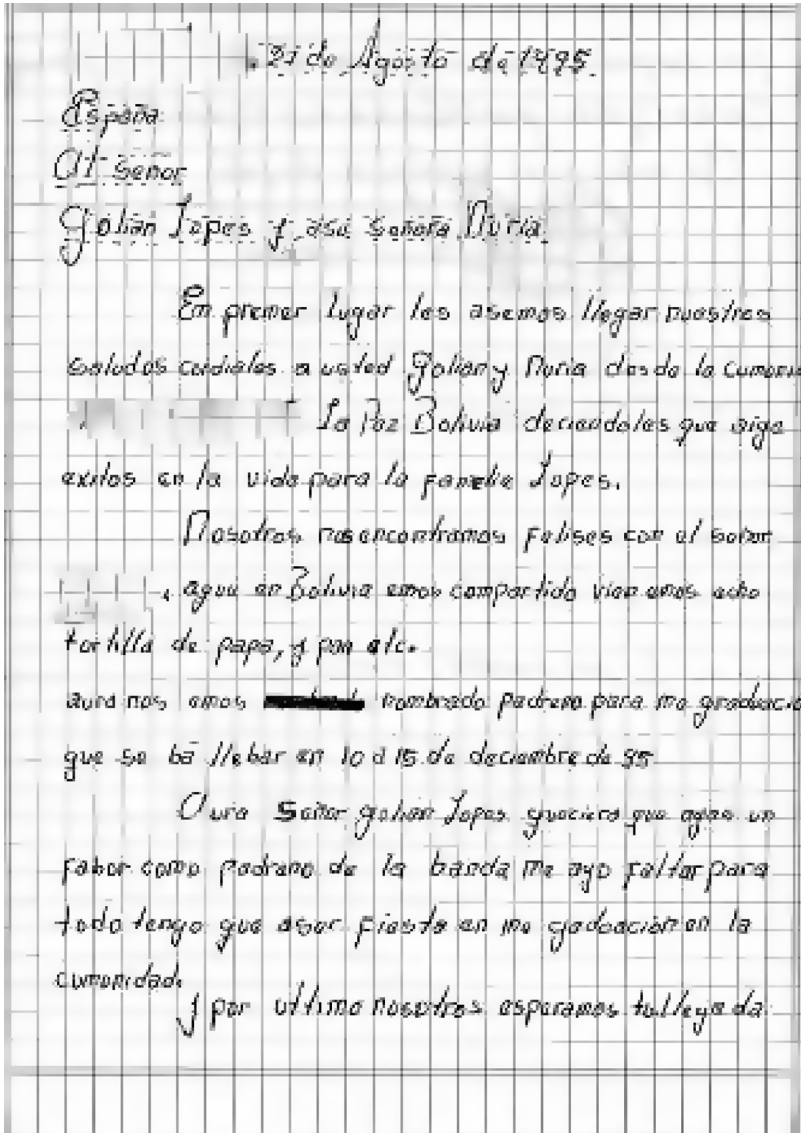 21 de Agosto de 1995
España
Al señor
Golian Lopes y asu señora Nuria
En premer lugar les asemos llegar nuestros
saludos cordiales a usted Golian y Nuria desde la cumuni
La Paz Bolivia deciendoles que aiga
exitos en la vida para la familia Lopes.
Nosotros nos encontramos felises con el señor
, aguu en Bolivia emos compartido vien emos echo
tortilla de papa, y pan etc.
aura nos emos nombrado padreno para me graduacio
que se ba llebar en 10 a 15 de deciembre de 95
Aura Señor golian Lopes quuciera que agas un
fabor como padrano de la banda me ayo faltar para
todo tengo que aser fiasta en me gadoación en la
cumunidad.
y por ultimo nosotros esparamos tu llegada